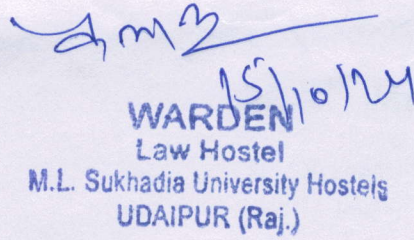 15/10/24
WARDEN
Law Hostel
M.L. Sukhadia University Hostels
UDAIPUR (Raj.)